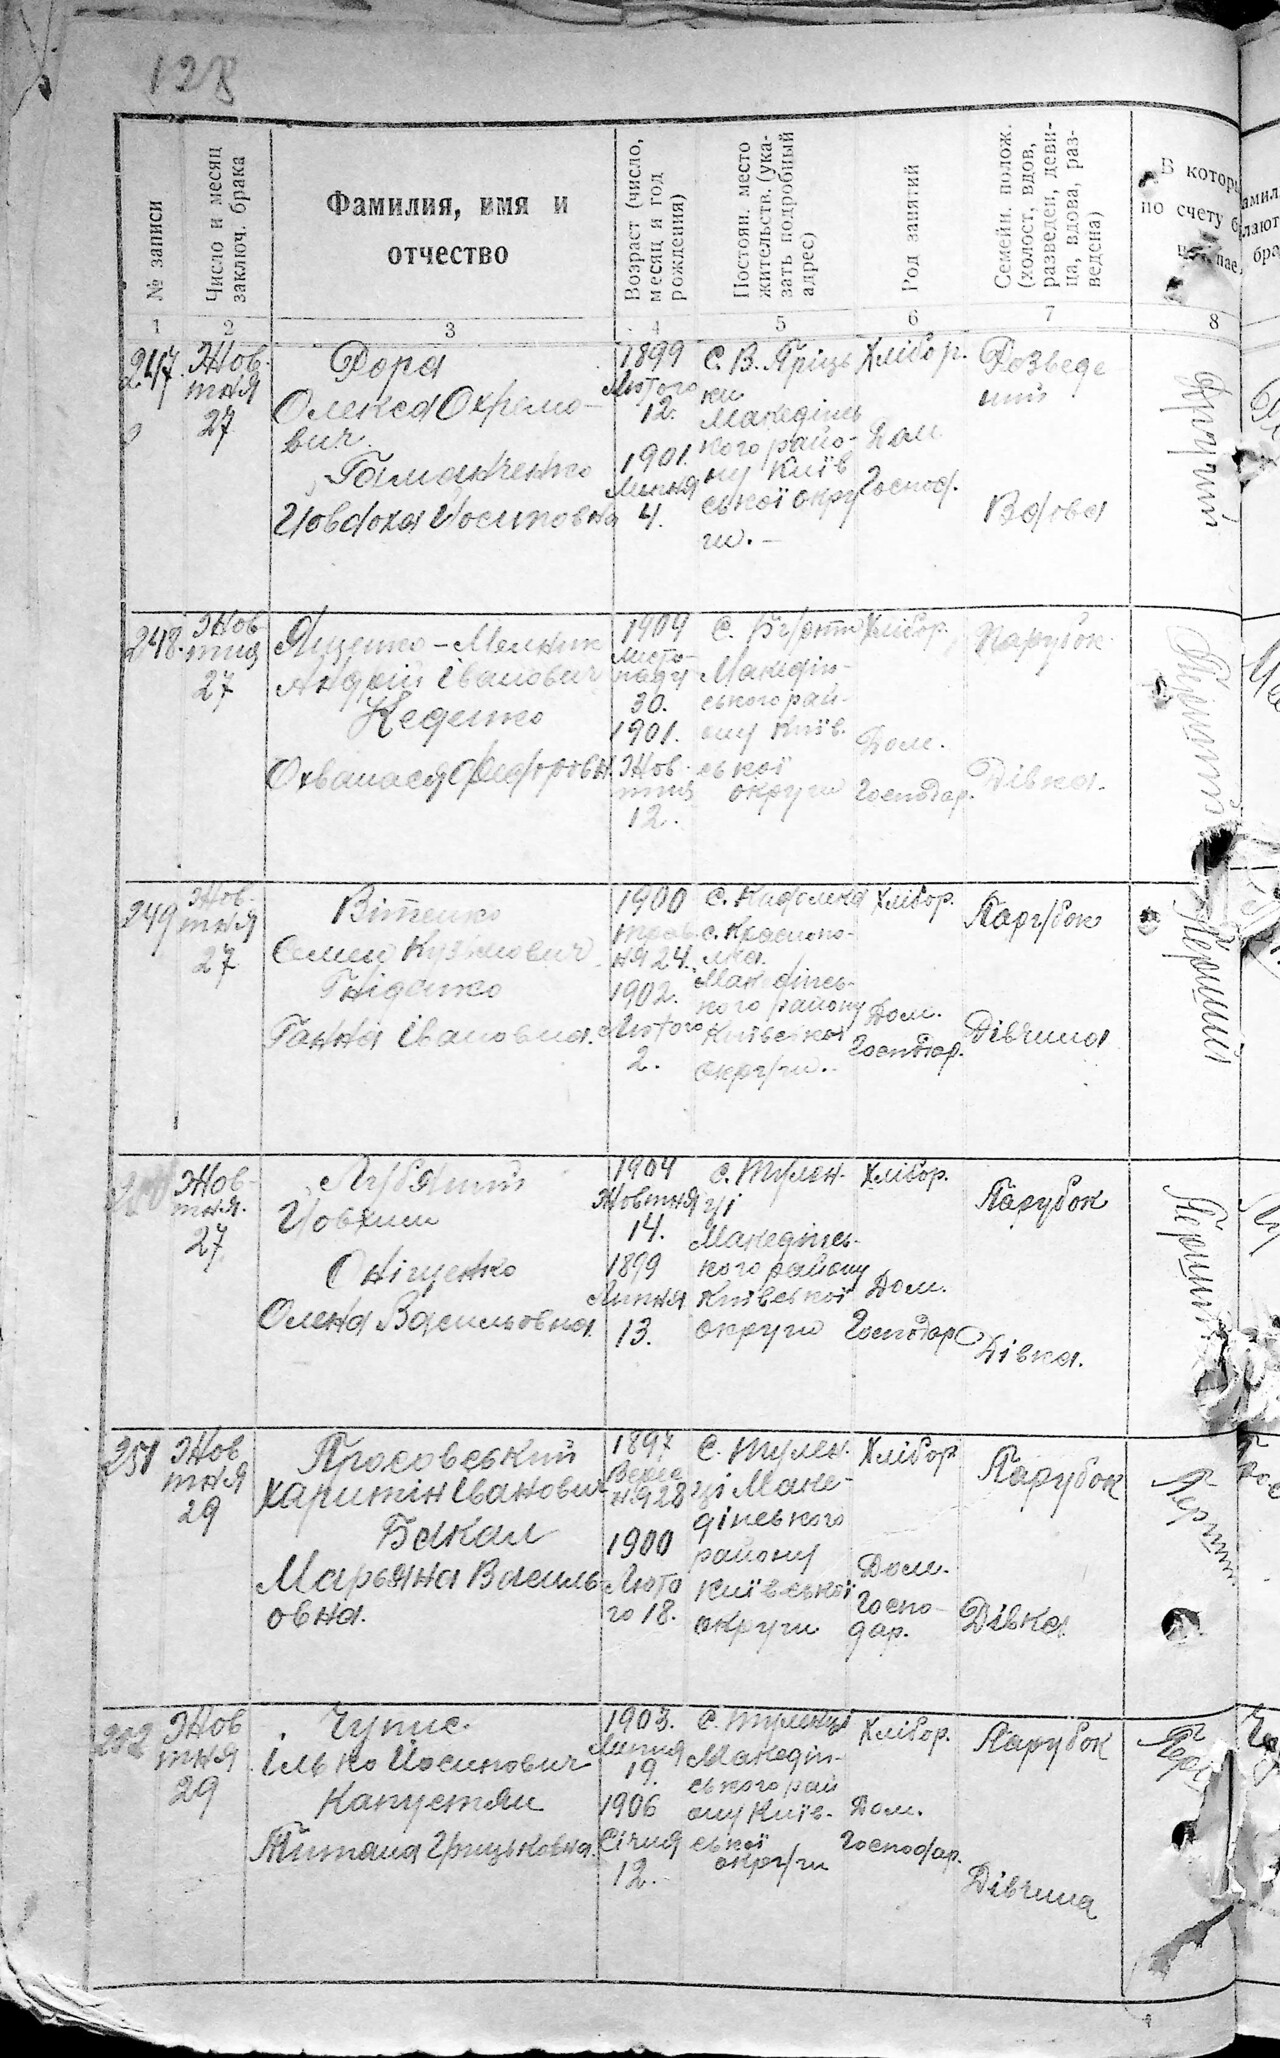 128
№ записи
Число и месяц заключ. брака
Фамилия, имя и
отчество
Возраст (число,
месяц и год
рождения)
Постоян. место
жительств. (ука-
зать подробный
адрес)
Род занятий
Семейн. полож.
(холост, вдов,
разведен, деви-
ца, вдова, раз-
ведена)
В котор
по счету б
1 2 3 4 5 6 7 8
247
Жов-
тня
27
Дора
Олекса Охремо-
вич
Гаманченко
Йовдоха Йосиповна
1899
Лютого
12.
1901.
Липня
4.
С. В. Пріць
ки
Македінсь
кого райо-
ну Київ
ської окру
ги. –
Хлібор.
Дом
Господ.
Розведе
ний
Вдова
Другий
248.
Жов
тня
27
Ященко – Мельник
Андрій Івановић
Кеденко
Охванасія Федоровн.
1909
Листо-
паду
30.
1901.
Жов-
тня
12.
С.
Македін-
ського рай-
ону Київ.
ської
округи
Хлібор.
Дом.
Господар.
Парубок
Дівка.
249
Жов-
тня
27
Вітенко
Семен Кузьмович
Гніденко
Ганна Івановна.
1900
Трав-
ня 24.
1902.
Лютого
2.
с. Кадомка
с. Краснопо-
лка.
Македінсь-
кого району
Київської
округи.
Хлібор.
Дом.
Господар.
Парубок
Дівчина
Перший
Жов-
тня.
27
Лубяний
Йовхим
Оніщенко
Олена Васильовна.
1904
Жовтня
14.
1899
Липня
13.
с. Тулен-
ці
Македінсь-
кого району
Київської
округи
Хлібор.
Дом.
Господар
Парубок
Дівка.
Перший
251
Жов
тня
29
Проховський
Харитін Іванович
Бакал
Марьяна Василь-
овна.
1897
Верес
ня 28
1900
Люто
го 18.
С. Тулен-
ці Маке-
дінського
району
Київської
округи
Хлібор
Дом.
Госпо-
дар.
Парубок
Дівка
Перший
252
Жов
тня
29
Чупис.
Ілько Йосипович
Капустян
Титяна Грицьковна.
1903.
Липня
19.
1906
Січня
12.
С. Туленці
Македін-
ського рай
ону Київ-
ської
округи
Хлібор.
Дом.
Господар.
Парубок
Дівчина